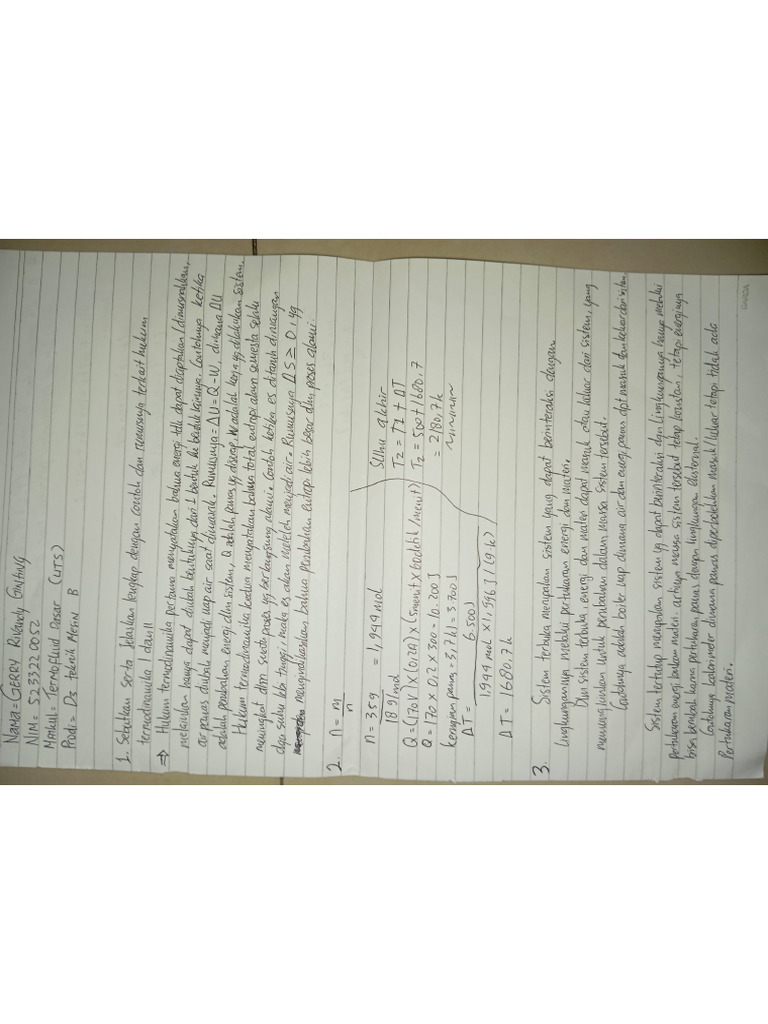 Nama = GERRY RIVALDY GINTING
NIM = 5233220052
Matkul = Termofluid Dasar (UTS)
Prodi = D3 teknik Mesin B
1. Sebutkan serta Jelaskan lengkap dengan contoh dan rumusnya terkait hukum
termodinamika I dan II
⇒ Hukum termodinamika pertama menyatakan bahwa energi tdk dapat diciptakan / dimusnahkan,
melainkan hanya dapat diubah bentuknya dari 1 bentuk ke bentuk lainnya. Contohnya ketika
air panas diubah menjadi uap air saat dimasak. Rumusnya = ΔU = Q - W, dimana ΔU
adalah perubahan energi dlm sistem, Q adalah panas yg diserap, W adalah kerja yg dilakukan sistem.
Hukum termodinamika kedua menyatakan bahwa total entropi alam semesta selalu
meningkat dlm suatu proses yg berlangsung alami. Contoh ketika es ditaruh diruangan
dgn suhu lbh tinggi, maka es akan meleleh menjadi air. Rumusnya ΔS ≥ 0, yg
mengindikasikan bahwa perubahan entropi lebih besar dlm proses alami.
2. n = m/n
n = 35g / 18 g/mol = 1,944 mol
Q = (170 V) x (0,2A) x (5menit x 60detik/menit)
Q = 170 x 0,2 x 300 = 10.200 J
kerugian panas = 3,7 kJ = 3.700 J
ΔT = 6.500J / 1,944 mol x 1,996 J/(g.k)
ΔT = 1680,7 k
Suhu akhir
T2 = T1 + ΔT
T2 = 500 + 1680.7
= 2180,7 k
3. Sistem terbuka merupakan sistem yang dapat berinteraksi dengan
lingkungannya melalui pertukaran energi dan materi.
Dlm sistem terbuka, energi dan materi dapat masuk atau keluar dari sistem, yang
memungkinkan untuk perubahan dalam massa sistem tersebut.
Contohnya adalah boiler uap dimana air dan energi panas dpt masuk dan keluar dari sistem.
Sistem tertutup merupakan sistem yg dapat berinteraksi dgn lingkungannya hanya melalui
pertukaran energi bukan materi. artinya massa sistem tersebut tetap konstan, tetapi energinya
bisa berubah karna pertukaran panas dengan lingkungan eksternal.
Contohnya kalorimeter dimana panas diperbolehkan masuk/keluar tetapi tidak ada
Pertukaran materi.